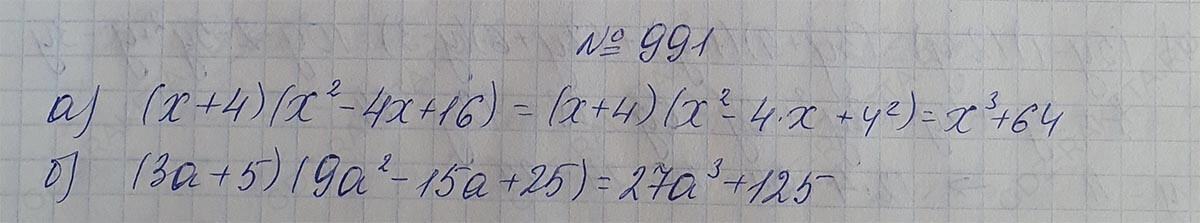 № 991
а) (x+4)(x²-4x+16) = (x+4)(x²-4·x+4²)=x³+64
б) (3a+5)(9a²-15a+25)=27a³+125